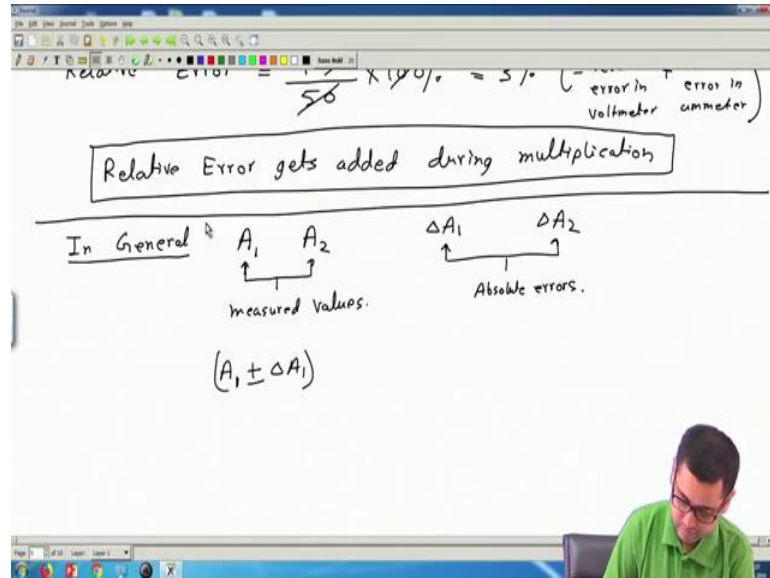 File Edit View Journal Tools Options Help
Relative Error = × 100% = 3% ( error in + error in
50 voltmeter ammeter )
Relative Error gets added during multiplication
In General A₁ A₂ ΔA₁ ΔA₂
measured values. Absolute errors.
(A₁ ± ΔA₁)
Page 5 of 10 Layer: Layer 1